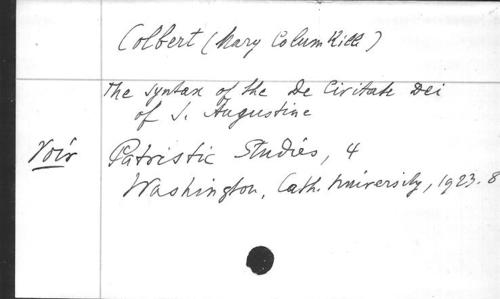 Colbert (Mary Columkille)
The syntax of the De Civitate Dei
of S. Augustine
Voir Patristic Studies, 4
Washington, Cath. University, 1923. 8